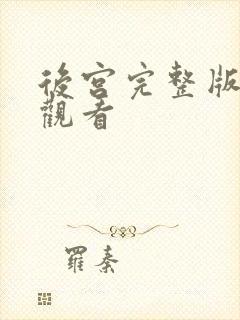 後宮完整版
觀看
羅秦